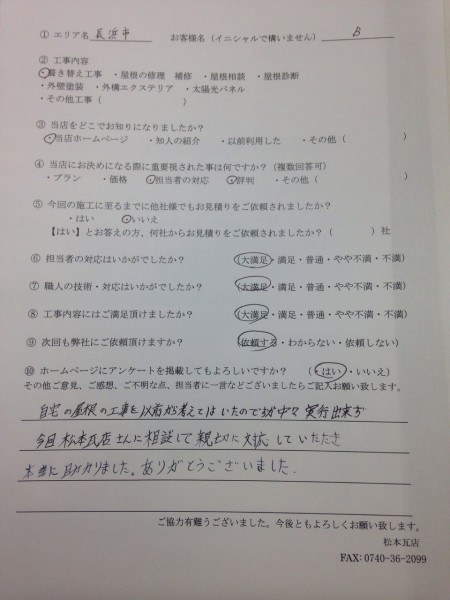 ① エリア名 長浜市 お客様名（イニシャルで構いません） B
② 工事内容
・葺き替え工事 ・屋根の修理 補修 ・屋根相談 ・屋根診断
・外壁塗装 ・外構エクステリア ・太陽光パネル
・その他工事（ ）
③ 当店をどこでお知りになりましたか？
・当店ホームページ ・知人の紹介 ・以前利用した ・その他（ ）
④ 当店にお決めになる際に重要視された事は何ですか？（複数回答可）
・プラン ・価格 ・担当者の対応 ・評判 ・その他（ ）
⑤ 今回の施工に至るまでに他社様でもお見積りをご依頼されましたか？
・はい ・いいえ
【はい】とお答えの方、何社からお見積りをご依頼されましたか？（ ）社
⑥ 担当者の対応はいかがでしたか？ （大満足・満足・普通・やや不満・不満）
⑦ 職人の技術・対応はいかがでしたか？ （大満足・満足・普通・やや不満・不満）
⑧ 工事内容にはご満足頂けましたか？ （大満足・満足・普通・やや不満・不満）
⑨ 次回も弊社にご依頼頂けますか？ （依頼する・わからない・依頼しない）
⑩ ホームページにアンケートを掲載してもよろしいですか？ （・はい・いいえ）
その他ご意見、ご感想、ご不明な点、担当者に一言などございましたらご記入お願い致します。
自宅の屋根の工事を以前から考えてはいたのですが中々実行出来ず
今回松本瓦店さんに相談して親切に対応していただき
本当に助かりました。ありがとうございました。
ご協力有難うございました。今後ともよろしくお願い致します。
松本瓦店
FAX: 0740-36-2099